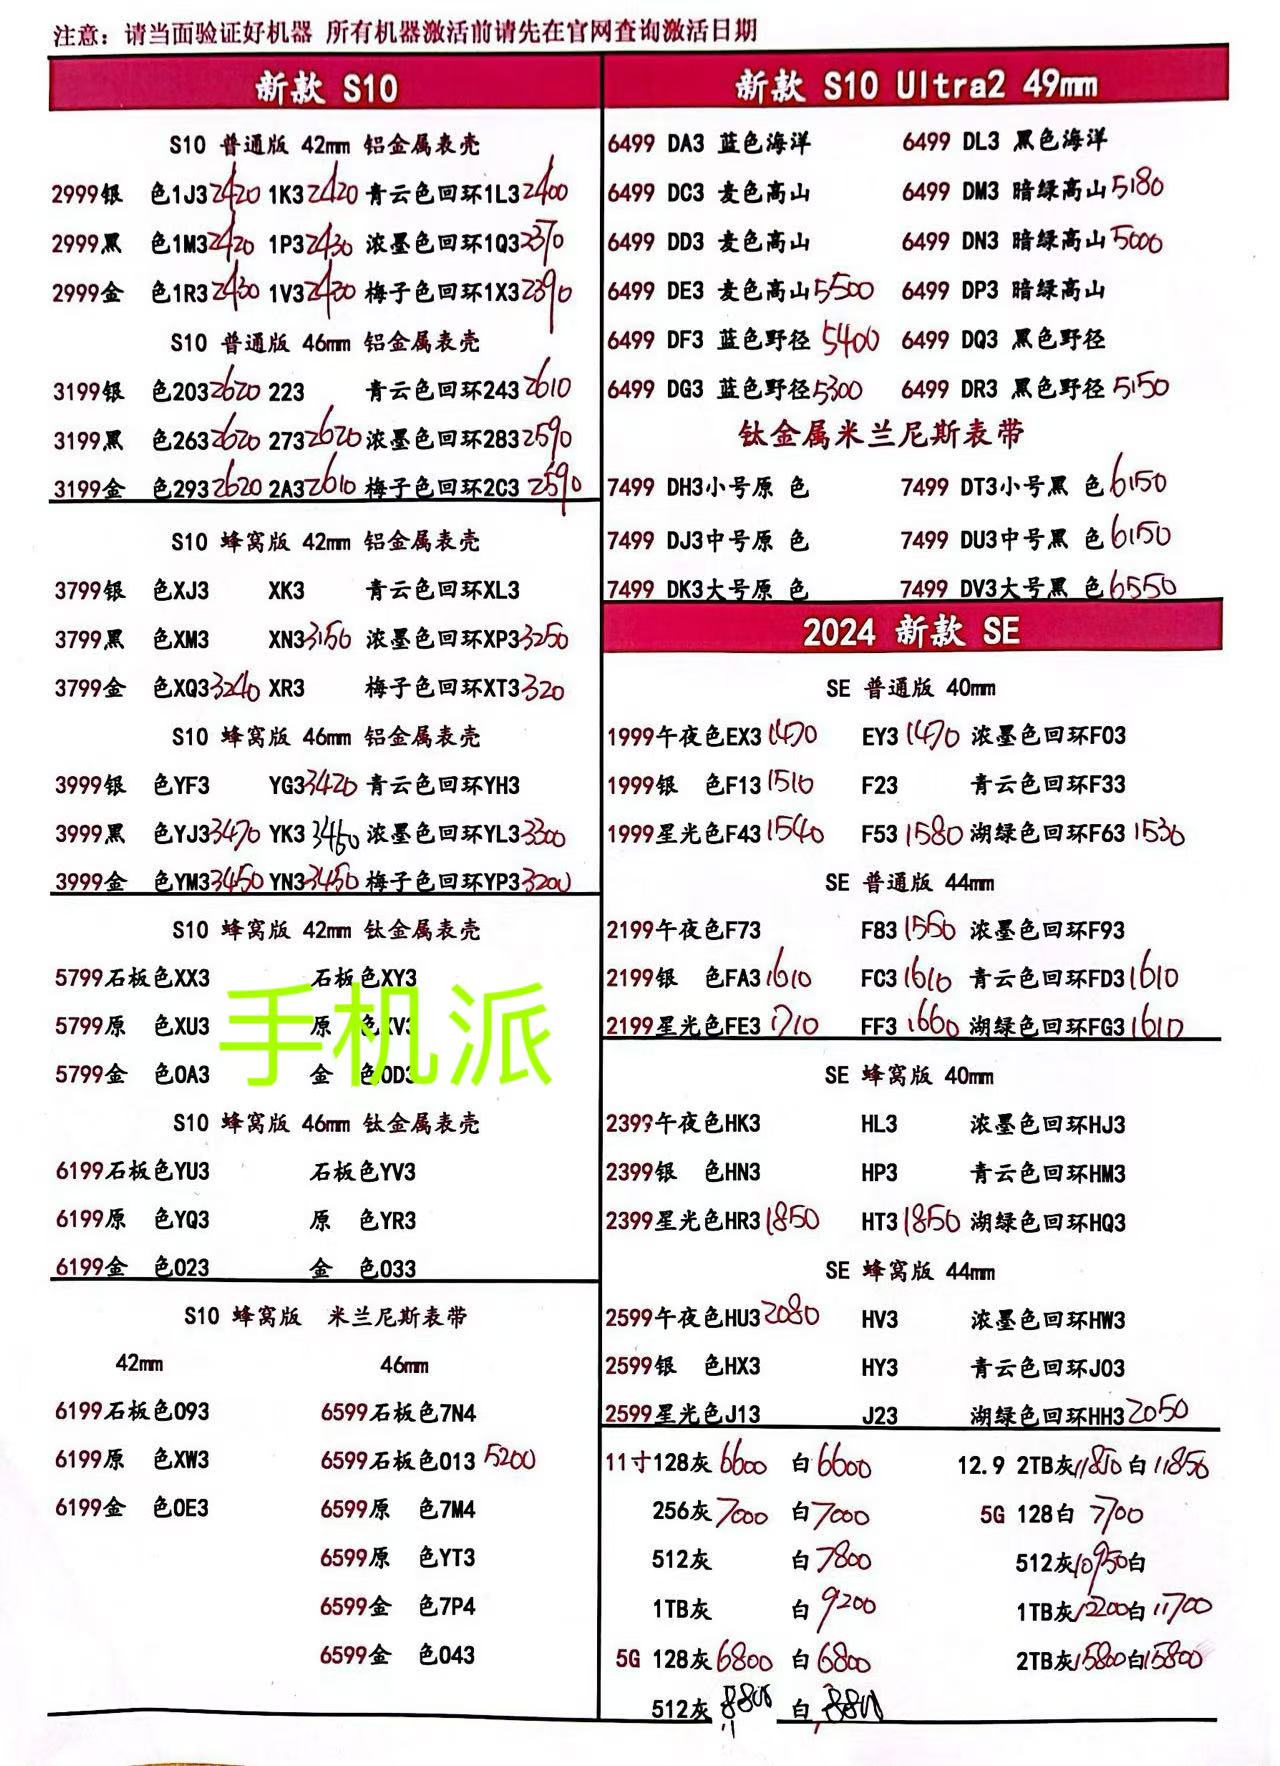 注意：请当面验证好机器 所有机器激活前请先在官网查询激活日期
新款 S10
S10 普通版 42mm 铝金属表壳
2999银 色1J3 2420 1K3 2420 青云色回环1L3 2400
2999黑 色1M3 2420 1P3 2430 浓墨色回环1Q3 2370
2999金 色1R3 2430 1V3 2430 梅子色回环1X3 2390
S10 普通版 46mm 铝金属表壳
3199银 色203 2620 223 青云色回环243 2610
3199黑 色263 2620 273 2620 浓墨色回环283 2590
3199金 色293 2620 2A3 2610 梅子色回环2C3 2590
S10 蜂窝版 42mm 铝金属表壳
3799银 色XJ3 XK3 青云色回环XL3
3799黑 色XM3 XN3 3150 浓墨色回环XP3 3250
3799金 色XQ3 3240 XR3 梅子色回环XT3 320
S10 蜂窝版 46mm 铝金属表壳
3999银 色YF3 YG3 3420 青云色回环YH3
3999黑 色YJ3 3470 YK3 3460 浓墨色回环YL3 3300
3999金 色YM3 3450 YN3 3450 梅子色回环YP3 3200
S10 蜂窝版 42mm 钛金属表壳
5799石板色XX3 石板色XY3
5799原 色XU3 原 色XV3
5799金 色0A3 金 色0D3
手机派
S10 蜂窝版 46mm 钛金属表壳
6199石板色YU3 石板色YV3
6199原 色YQ3 原 色YR3
6199金 色023 金 色033
S10 蜂窝版 米兰尼斯表带
42mm 46mm
6199石板色093 6599石板色7N4
6199原 色XW3 6599石板色013 5200
6199金 色0E3 6599原 色7M4
6599原 色YT3
6599金 色7P4
6599金 色043
新款 S10 Ultra2 49mm
6499 DA3 蓝色海洋 6499 DL3 黑色海洋
6499 DC3 麦色高山 6499 DM3 暗绿高山 5180
6499 DD3 麦色高山 6499 DN3 暗绿高山 5000
6499 DE3 麦色高山 5500 6499 DP3 暗绿高山
6499 DF3 蓝色野径 5400 6499 DQ3 黑色野径
6499 DG3 蓝色野径 5300 6499 DR3 黑色野径 5150
钛金属米兰尼斯表带
7499 DH3小号原 色 7499 DT3小号黑 色 6150
7499 DJ3中号原 色 7499 DU3中号黑 色 6150
7499 DK3大号原 色 7499 DV3大号黑 色 6550
2024 新款 SE
SE 普通版 40mm
1999午夜色EX3 1470 EY3 1470 浓墨色回环F03
1999银 色F13 1510 F23 青云色回环F33
1999星光色F43 1540 F53 1580 湖绿色回环F63 1530
SE 普通版 44mm
2199午夜色F73 F83 1550 浓墨色回环F93
2199银 色FA3 1610 FC3 1610 青云色回环FD3 1610
2199星光色FE3 1710 FF3 1660 湖绿色回环FG3 1610
SE 蜂窝版 40mm
2399午夜色HK3 HL3 浓墨色回环HJ3
2399银 色HN3 HP3 青云色回环HM3
2399星光色HR3 1850 HT3 1850 湖绿色回环HQ3
SE 蜂窝版 44mm
2599午夜色HU3 2080 HV3 浓墨色回环HW3
2599银 色HX3 HY3 青云色回环J03
2599星光色J13 J23 湖绿色回环HH3 2050
11寸128灰 6600 白 6600 12.9 2TB灰 11850 白 11850
256灰 7000 白 7000 5G 128白 7700
512灰 白 7800 512灰 10950 白
1TB灰 白 9200 1TB灰 12200 白 11700
5G 128灰 6800 白 6800 2TB灰 15800 白 15800
512灰 8800 白 8800